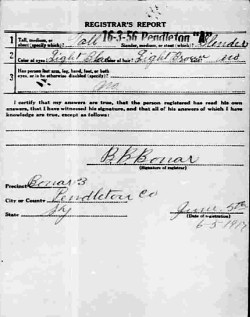 REGISTRAR'S REPORT
16-3-56 Pendleton "A"
1 Tall, medium, or short (specify which)? Tall Slender, medium, or stout (which)? Slender
2 Color of eyes? Light Color of hair? Light Brown No
3 Has person lost arm, leg, hand, foot, or both
eyes, or is he otherwise disabled (specify)?
No
I certify that my answers are true, that the person registered has read his own
answers, that I have witnessed his signature, and that all of his answers of which I have
knowledge are true, except as follows:
B.B. Bonar
(Signature of registrar)
Precinct Bonar 3
City or County Pendleton Co
State Ky
June 5th
(Date of registration)
6-5 1917